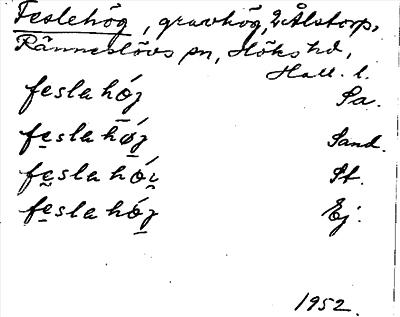 Feslehög, gravhög, 2 Ålstorp,
Ränneslövs sn, Höks hd,
Hall. l.
fesla hǿʒ Sa.
fe̱sla hǿʒ Sand.
fe̱sla hǿi̯ St.
fe̱sla hǿʒ Ej.
1952.